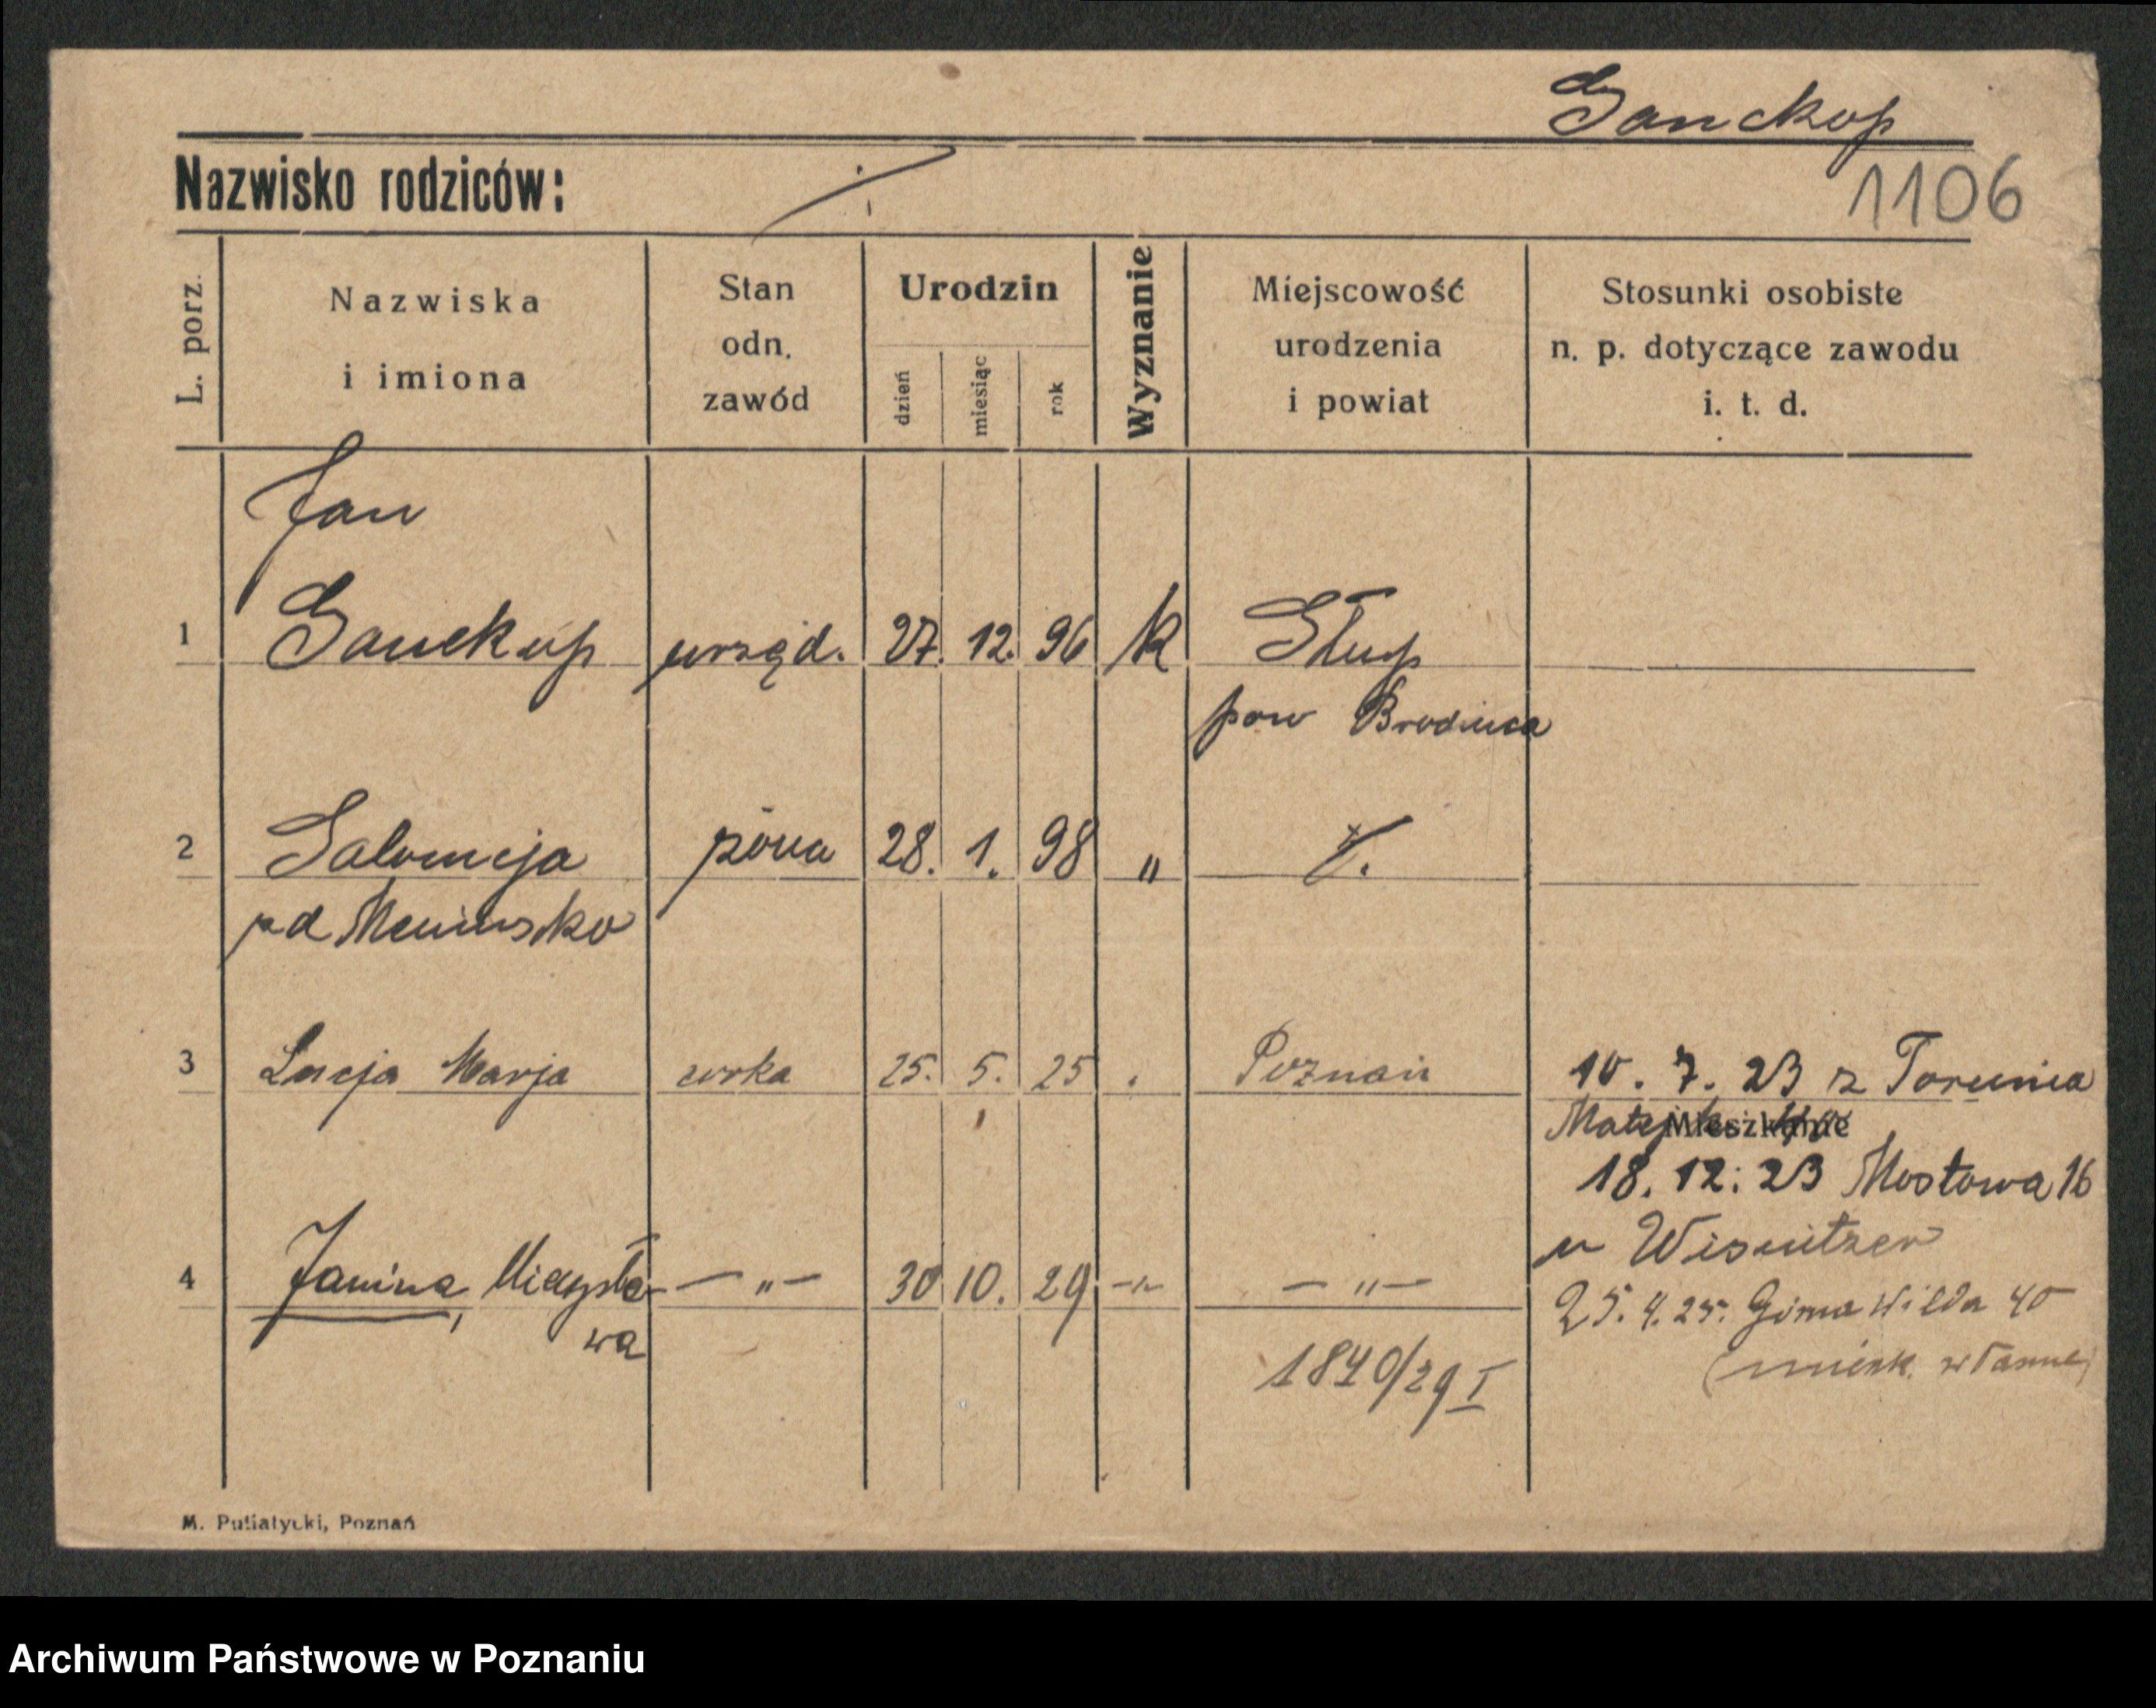 Sanckop
1106
Nazwisko rodziców:
L. porz.
Nazwiska
i imiona
Stan
odn.
zawód
Urodzin
dzień
miesiąc
rok
Wyznanie
Miejscowość
urodzenia
i powiat
Stosunki osobiste
n. p. dotyczące zawodu
i. t. d.
Jan
1 Sanckop urzęd. 27. 12. 96 k Słup
pow Brodnica
2 Salomeja żona 28. 1. 98 "
zd
3 Lucja Marja corka 25. 5. 25 Poznań
10. 7. 23 z Torunia
Mieszkanie
18. 12. 23 Mostowa 16
u
4 Janina, Mieczysła- — " — 30 10. 29 — " — — " —
wa
25. 4. 25. Górna Wilda 40
(mieszk. własne)
1840/29 I
M. Putiatycki, Poznań
Archiwum Państwowe w Poznaniu